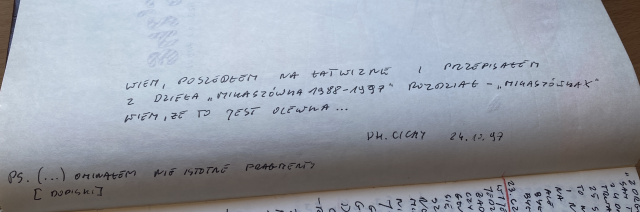 WIEM, POSZEDŁEM NA ŁATWIZNĘ I PRZEPISAŁEM
Z DZIEŁA „MIKASZÓWKA 1988-1997” ROZDZIAŁ - „MIKASZÓWKAX”
WIEM, ŻE TO JEST OLEWKA...
DH. CICHY 24.12.97
PS. (...) OMINĄŁEM NIE ISTOTNE FRAGMENTY
[DOPISKI]